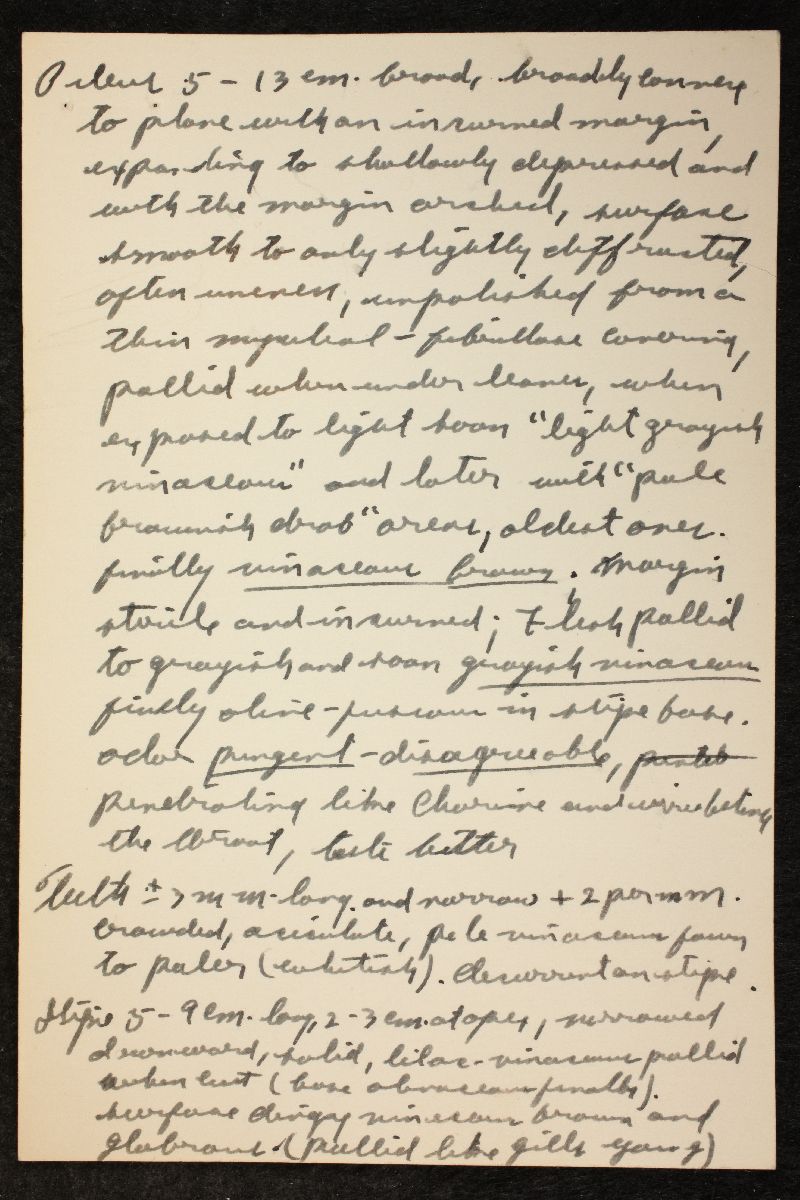 Pileus 5 - 13 cm. broad, broadly convex
to plane with an incurved margin,
expanding to shallowly depressed and
with the margin arched, surface
smooth to only slightly diffracted,
often uneven, unpolished from a
thin - fibrillose covering,
pallid when under leaves, when
exposed to light soon "light grayish
vinaceous" and later with "pale
brownish drab" areas, oldest ones.
finally vinaceous brown. Margin
sterile and incurved; Flesh pallid
to grayish and soon grayish vinaceous
finally olive-fuscous in stipe base.
odor pungent - disagreeable,
penetrating like Chlorine and irritating
the throat, taste bitter
Teeth ± 3 mm. long, and narrow + 2 per mm.
crowded, aciculate, pale vinaceous fawn
to paler (whitish). decurrent on stipe.
Stipe 5 - 9 cm. long, 2 - 3 cm. at apex, narrowed
downward, solid, lilac-vinaceous pallid
when cut (base finally).
surface dingy vinaceous brown and
glabrous. (pallid like gills young)